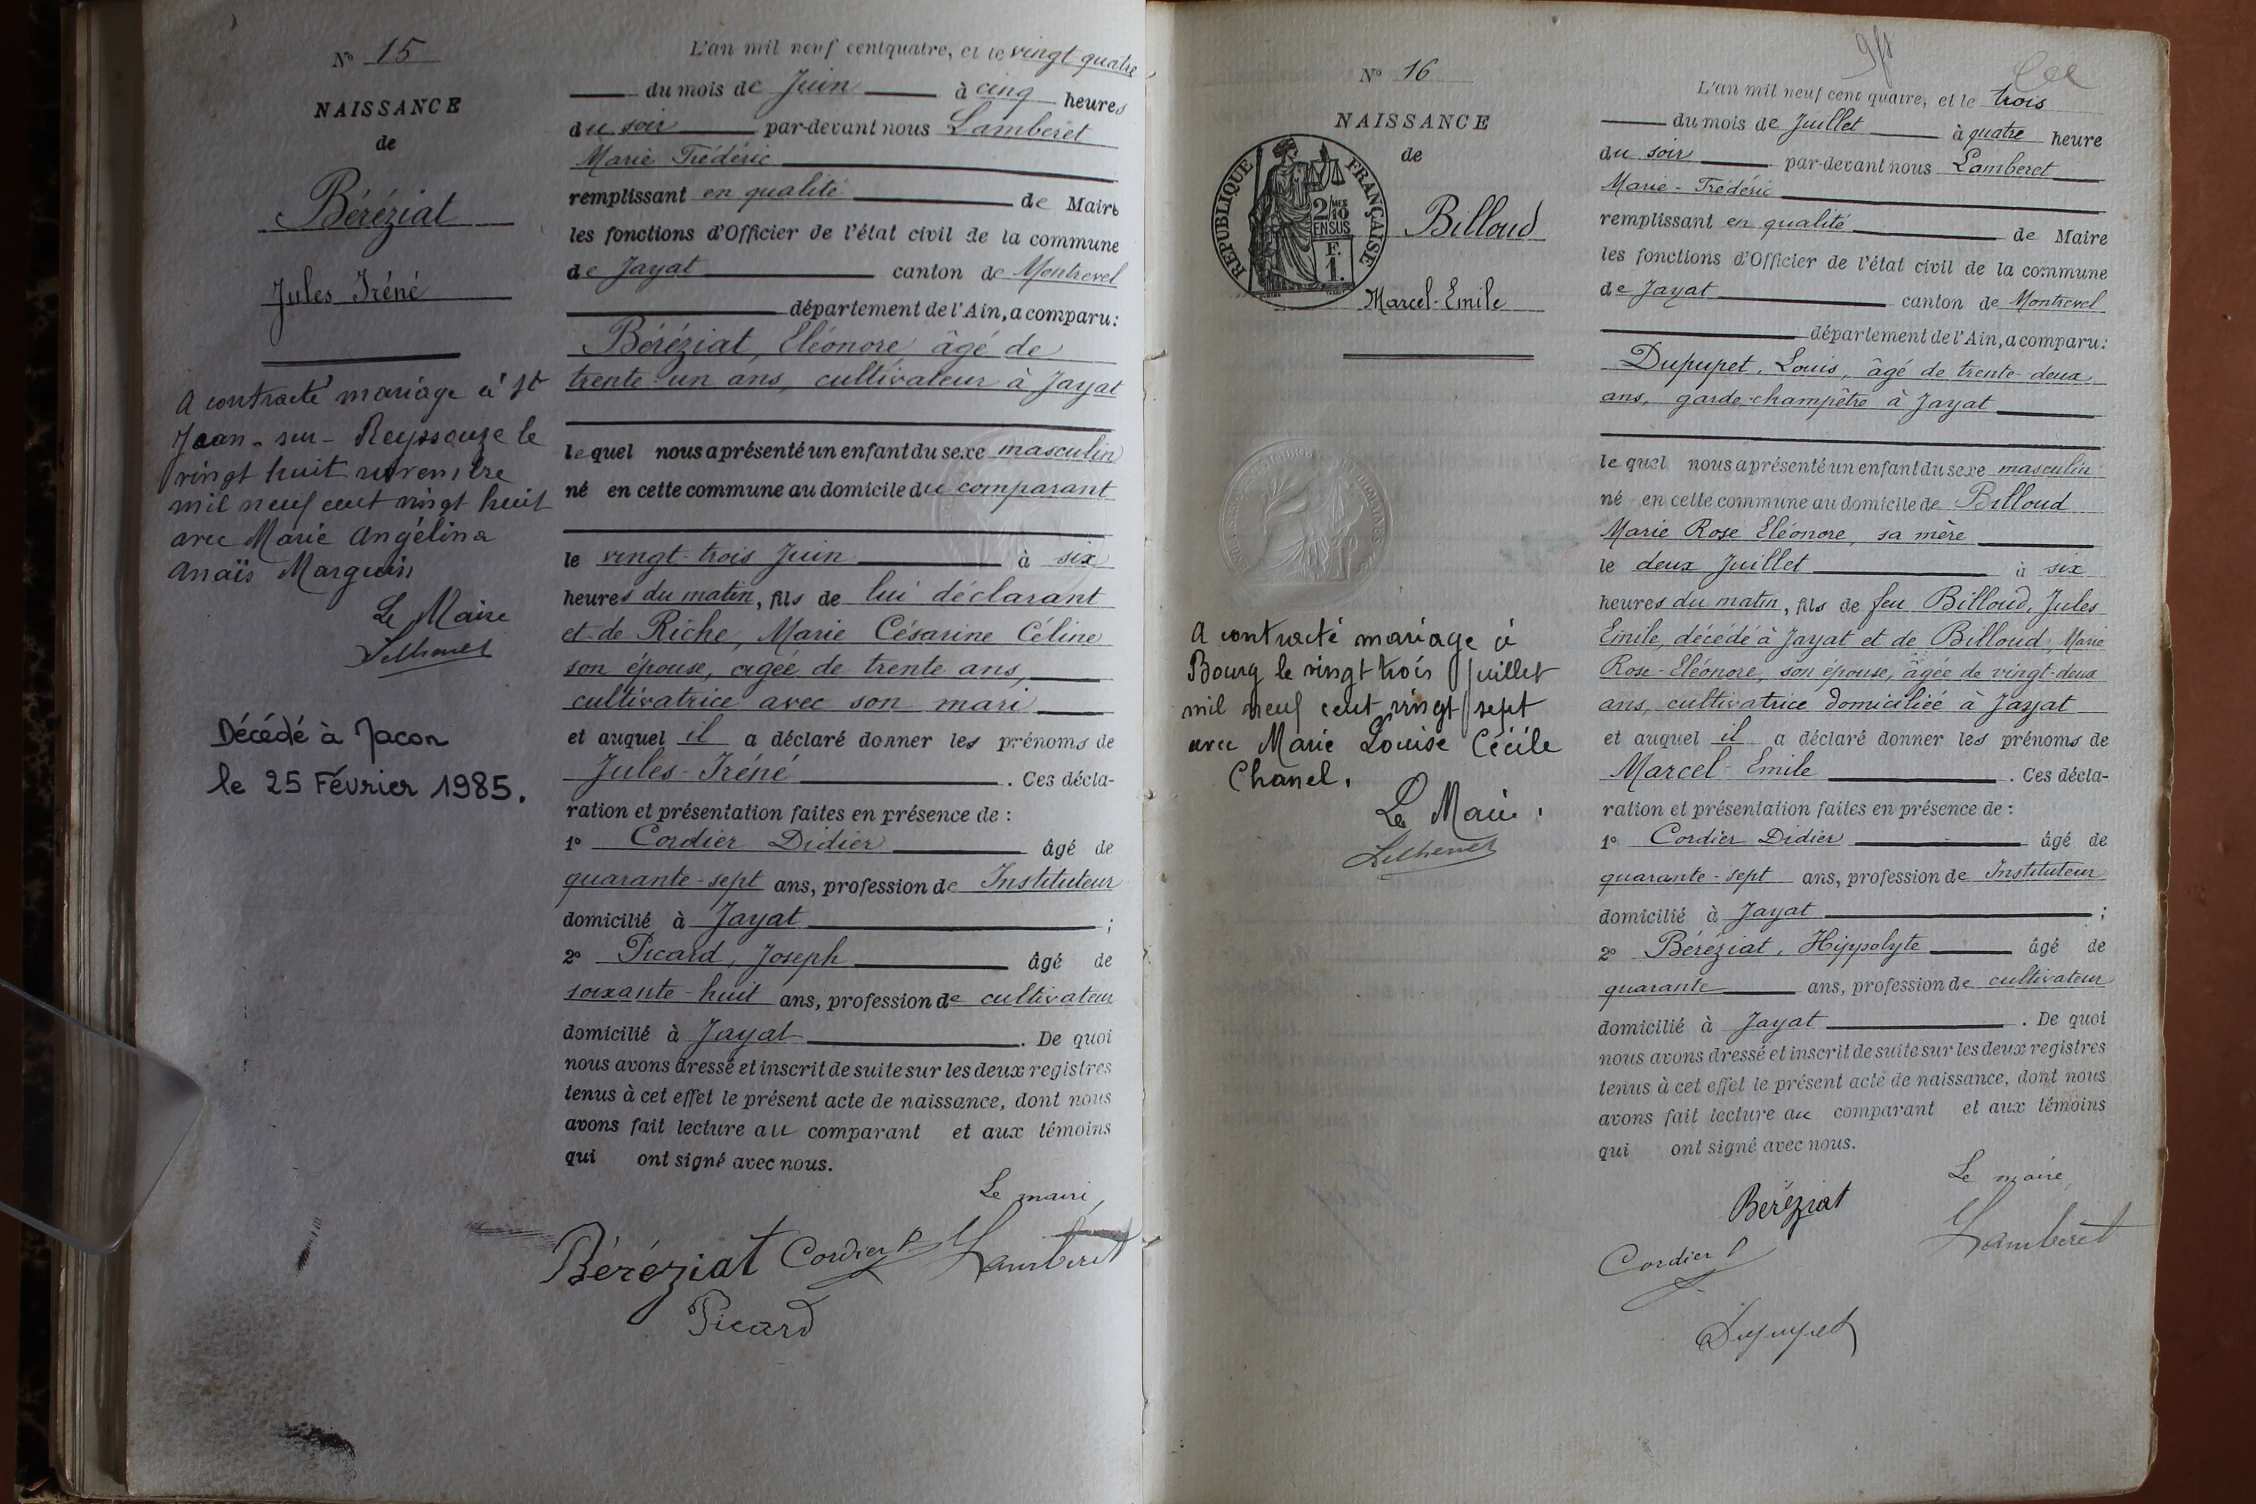 N° 15
NAISSANCE
de
Béréziat
Jules Iréné
A contracté mariage à St
Jean-sur-Reyssouze le
vingt huit novembre
mil neuf cent vingt huit
avec Marie Angélina
Anaïs Marguin
Le Maire
Décédé à Jacou
le 25 Février 1985.
L'an mil neuf cent quatre, et le vingt quatre
du mois de Juin à cinq heures
du soir par-devant nous Lamberet
Marie Frédéric
remplissant en qualité de Maire
les fonctions d'Officier de l'état civil de la commune
de Jayat canton de Montrevel
département de l'Ain, a comparu :
Béréziat, Eléonore âgé de
trente-un ans, cultivateur à Jayat
lequel nous a présenté un enfant du sexe masculin
né en cette commune au domicile du comparant
le vingt-trois Juin à six
heures du matin, fils de lui déclarant
et de Riche, Marie Césarine Céline
son épouse, agée de trente ans,
cultivatrice avec son mari
et auquel il a déclaré donner les prénoms de
Jules-Iréné. Ces décla-
ration et présentation faites en présence de :
1° Cordier Didier âgé de
quarante-sept ans, profession de Instituteur
domicilié à Jayat ;
2° Picard, Joseph âgé de
soixante-huit ans, profession de cultivateur
domicilié à Jayat. De quoi
nous avons dressé et inscrit de suite sur les deux registres
tenus à cet effet le présent acte de naissance, dont nous
avons fait lecture au comparant et aux témoins
qui ont signé avec nous.
Le maire,
Béréziat Cordier D Lamberet
Picard
N° 16
NAISSANCE
de
REPUBLIQUE FRANÇAISE
2/10 MES
EN SUS
F.
1.
Billoud
Marcel-Emile
A contracté mariage à
Bourg le vingt trois juillet
mil neuf cent vingt sept
avec Marie Louise Cécile
Chanel.
Le Maire
L'an mil neuf cent quatre, et le trois
du mois de Juillet à quatre heure
du soir par-devant nous Lamberet
Marie-Frédéric
remplissant en qualité de Maire
les fonctions d'Officier de l'état civil de la commune
de Jayat canton de Montrevel
département de l'Ain, a comparu :
Dupupet, Louis, âgé de trente-deux
ans, garde-champêtre à Jayat
lequel nous a présenté un enfant du sexe masculin
né en cette commune au domicile de Billoud
Marie Rose Eléonore, sa mère
le deux Juillet à six
heures du matin, fils de feu Billoud, Jules
Emile, décédé à Jayat et de Billoud, Marie
Rose-Eléonore, son épouse, âgée de vingt-deux
ans, cultivatrice domiciliée à Jayat
et auquel il a déclaré donner les prénoms de
Marcel-Emile. Ces décla-
ration et présentation faites en présence de :
1° Cordier Didier âgé de
quarante-sept ans, profession de Instituteur
domicilié à Jayat ;
2° Béréziat, Hippolyte âgé de
quarante ans, profession de cultivateur
domicilié à Jayat. De quoi
nous avons dressé et inscrit de suite sur les deux registres
tenus à cet effet le présent acte de naissance, dont nous
avons fait lecture au comparant et aux témoins
qui ont signé avec nous.
Le maire,
Béréziat
Lamberet
Cordier D
Dupupet